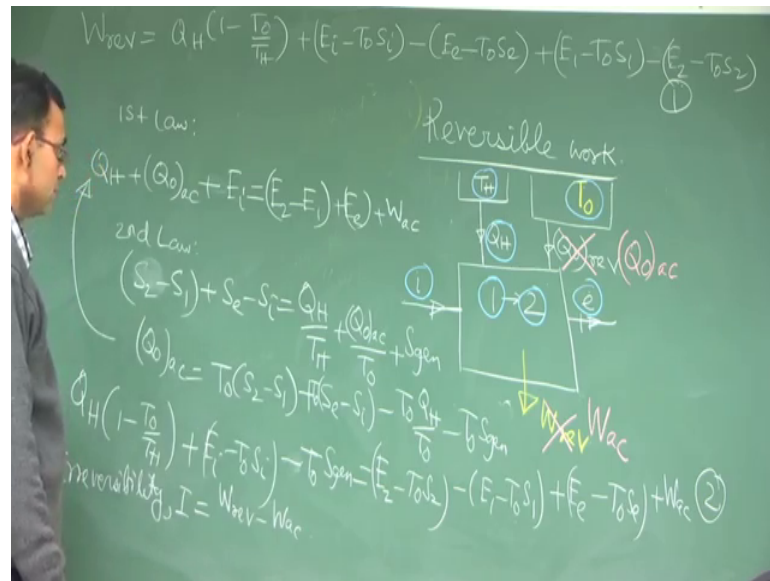 Wrev = QH(1-T0/TH) + (Ei-T0Si) - (Ee-T0Se) + (E1-T0S1) - (E2-T0S2)
①
1st Law:
QH + (Q0)ac + Ei = (E2-E1) + Ee) + Wac
2nd Law:
(S2-S1) + Se - Si = QH/TH + (Q0)ac/T0 + Sgen
(Q0)ac = T0(S2-S1) + T0(Se-Si) - T0 QH/T0 - T0 Sgen
QH(1-T0/TH) + (Ei-T0Si) - T0 Sgen = (E2-T0S2) - (E1-T0S1) + (Ee-T0Se) + Wac ②
irreversibility, I = Wrev - Wac
Reversible work.
TH
T0
QH
(Q0)rev (Q0)ac
i
1→2
e
Wrev Wac